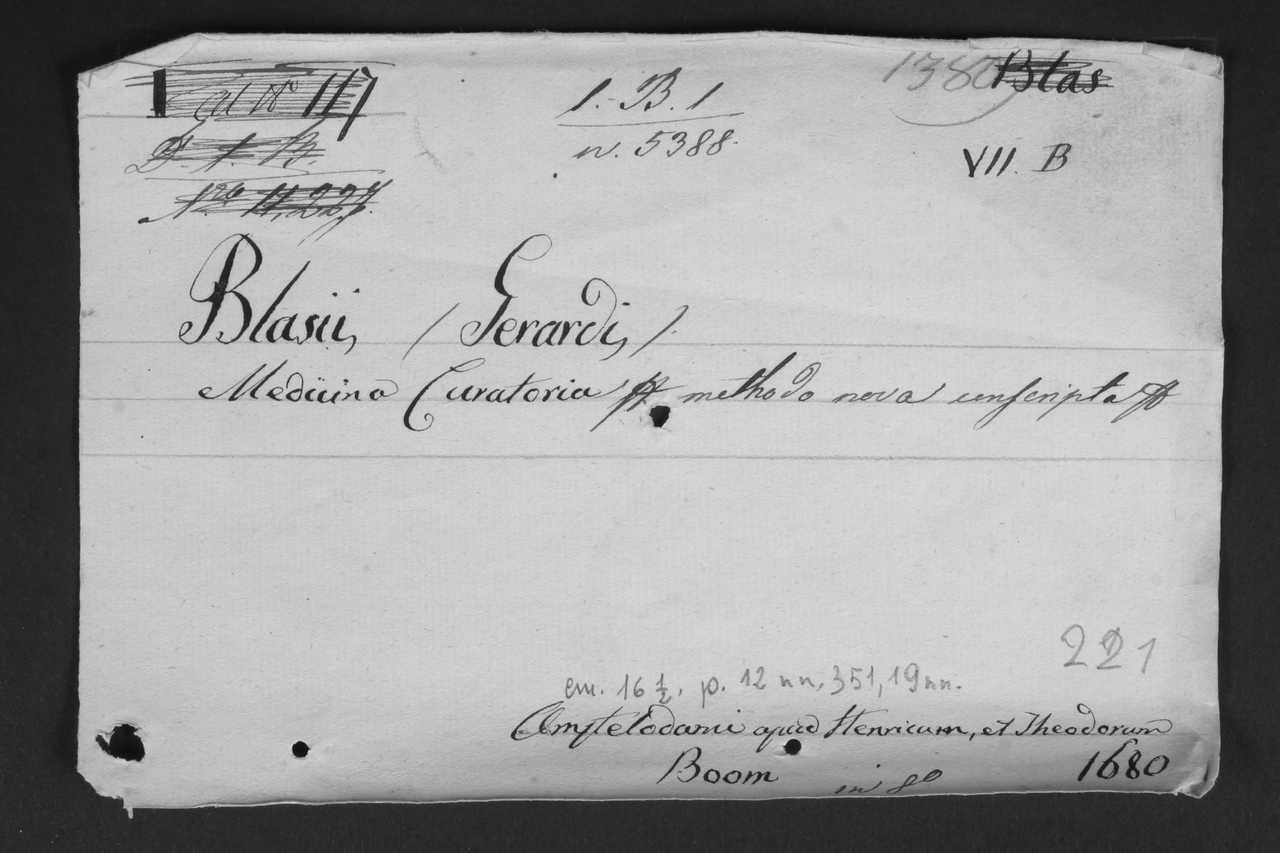 117
1. B. 1
n. 5388.
1380
Blas
VII. B
Nro 11,227.
Blasii, (Gerardi,).
Medicina Curatoria methodo nova conscripta
221
cm. 16 1/2. p. 12 nn, 351, 19 nn.
Amstelodami apud Henricum, et Theodorum
Boom in 8o 1680